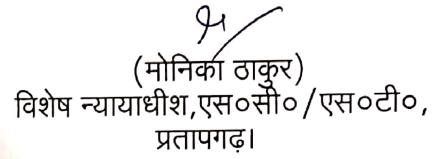 (मोनिका ठाकुर)
विशेष न्यायाधीश,एस०सी०/एस०टी०,
प्रतापगढ़।